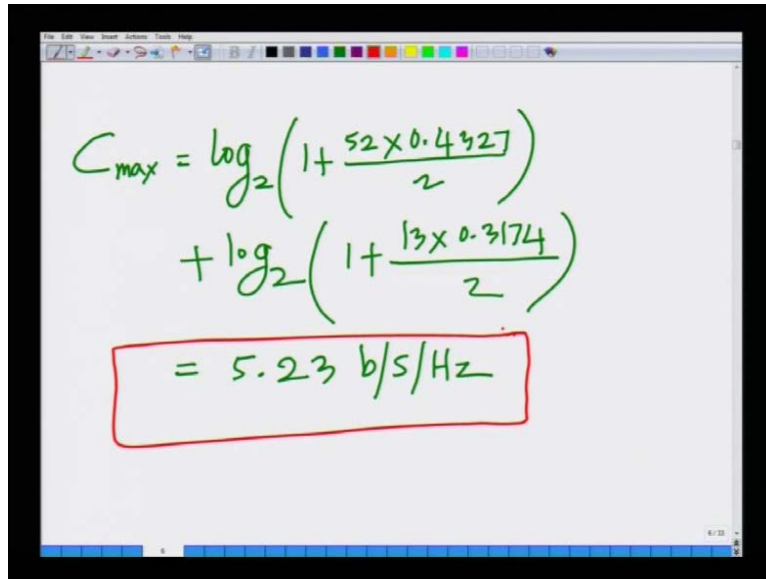 File Edit View Insert Actions Tools Help
B I
C max = log2 (1 + 52 x 0.4327 / 2)
+ log2 (1 + 13 x 0.3174 / 2)
= 5.23 b/s/Hz
6/33
6